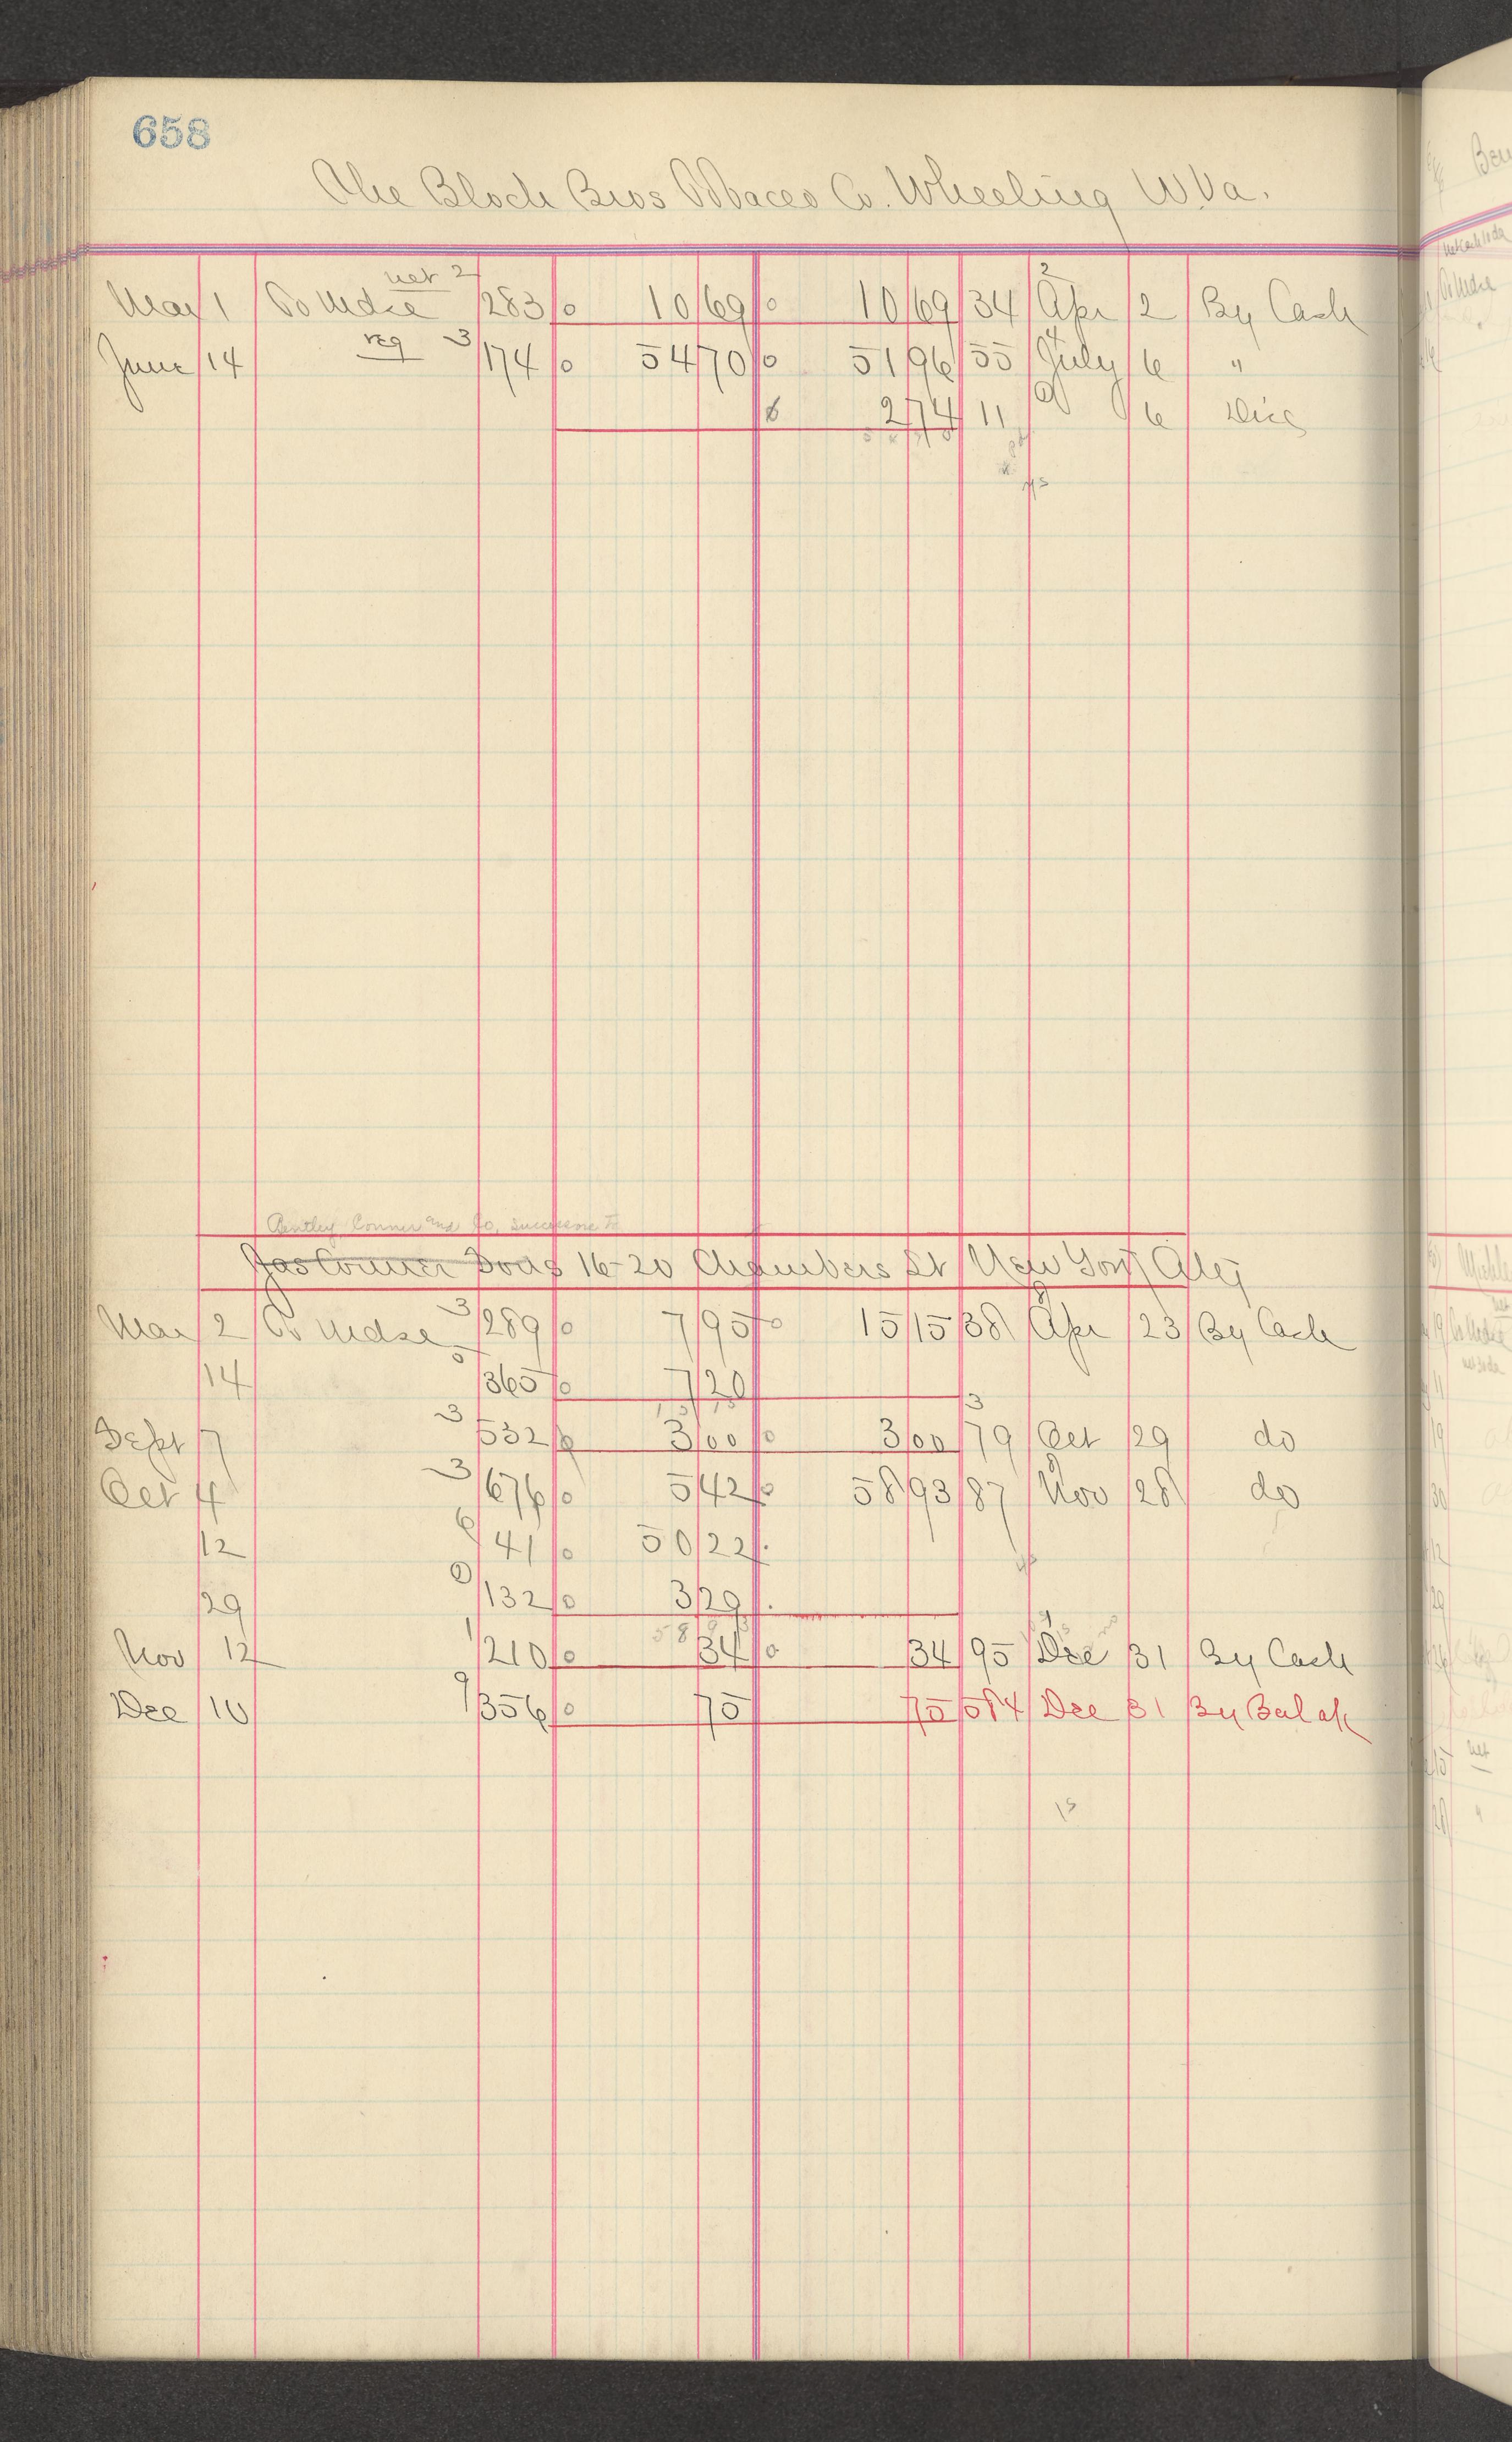 658
The Bloch Bros Tobacco Co. Wheeling W.Va.
Mar 1 To Mdse net 2 283 10 69 10 69 34 2 Apr 2 By Cash
June 14 reg 3 174 54 70 51 96 55 4 July 6 "
2 74 11 6 Disc
Bentley, Conner and Co. successors to
Jas Conner Sons 16-20 Chambers St New York City
Mar 2 To Mdse 3 289 7 95 15 15 38 Apr 23 By Cash
14 5 365 7 20
Sept 7 3 532 3 00 3 00 79 3 Oct 29 do
Oct 4 3 676 5 42 58 93 87 Nov 28 do
12 6 41 50 22
29 0 132 3 29
Nov 12 1 210 34 34 95 Dec 31 By Cash
Dec 10 9 356 75 75 584 Dec 31 By Bal a/c